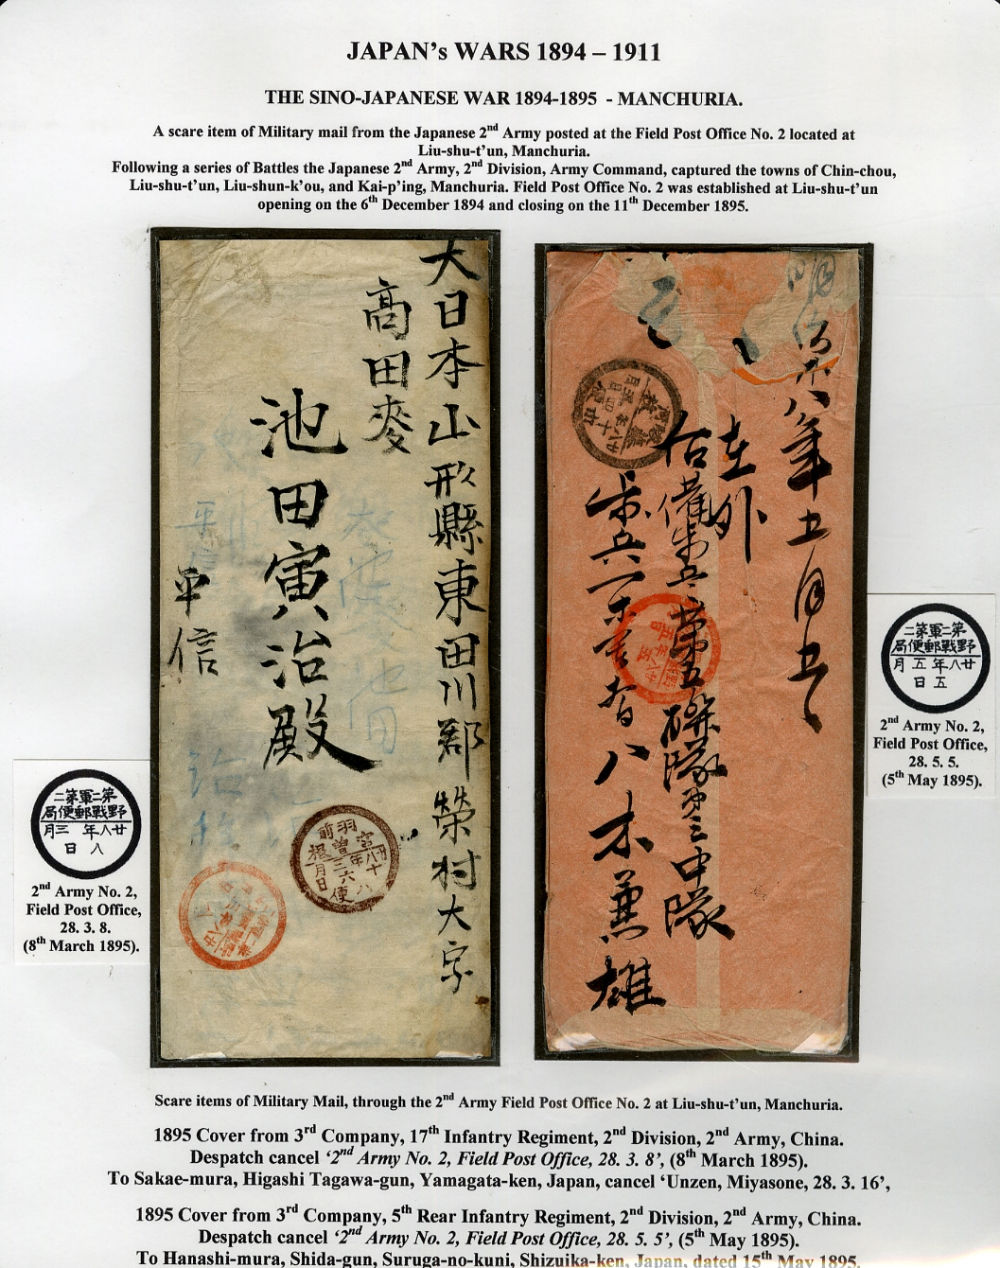 JAPAN's WARS 1894 – 1911
THE SINO-JAPANESE WAR 1894-1895 - MANCHURIA.
A scare item of Military mail from the Japanese 2nd Army posted at the Field Post Office No. 2 located at
Liu-shu-t'un, Manchuria.
Following a series of Battles the Japanese 2nd Army, 2nd Division, Army Command, captured the towns of Chin-chou,
Liu-shu-t'un, Liu-shun-k'ou, and Kai-p'ing, Manchuria. Field Post Office No. 2 was established at Liu-shu-t'un
opening on the 6th December 1894 and closing on the 11th December 1895.
大日本山形縣東田川郡榮村大字
高田麥
池田寅治殿
平信
羽前
宮曽根
廿八年
三月十六日
八便
第二軍第二
野戰郵便局
廿八年三月
八日
2nd Army No. 2,
Field Post Office,
28. 3. 8.
(8th March 1895).
八年五月五
在外
后備歩
第五聯隊第三中隊
歩兵
八木兼雄
第二軍第二
野戰郵便局
廿八年五月
五日
2nd Army No. 2,
Field Post Office,
28. 5. 5.
(5th May 1895).
Scare items of Military Mail, through the 2nd Army Field Post Office No. 2 at Liu-shu-t'un, Manchuria.
1895 Cover from 3rd Company, 17th Infantry Regiment, 2nd Division, 2nd Army, China.
Despatch cancel '2nd Army No. 2, Field Post Office, 28. 3. 8', (8th March 1895).
To Sakae-mura, Higashi Tagawa-gun, Yamagata-ken, Japan, cancel 'Unzen, Miyasone, 28. 3. 16',
1895 Cover from 3rd Company, 5th Rear Infantry Regiment, 2nd Division, 2nd Army, China.
Despatch cancel '2nd Army No. 2, Field Post Office, 28. 5. 5', (5th May 1895).
To Hanashi-mura, Shida-gun, Suruga-no-kuni, Shizuika-ken, Japan, dated 15th May 1895.